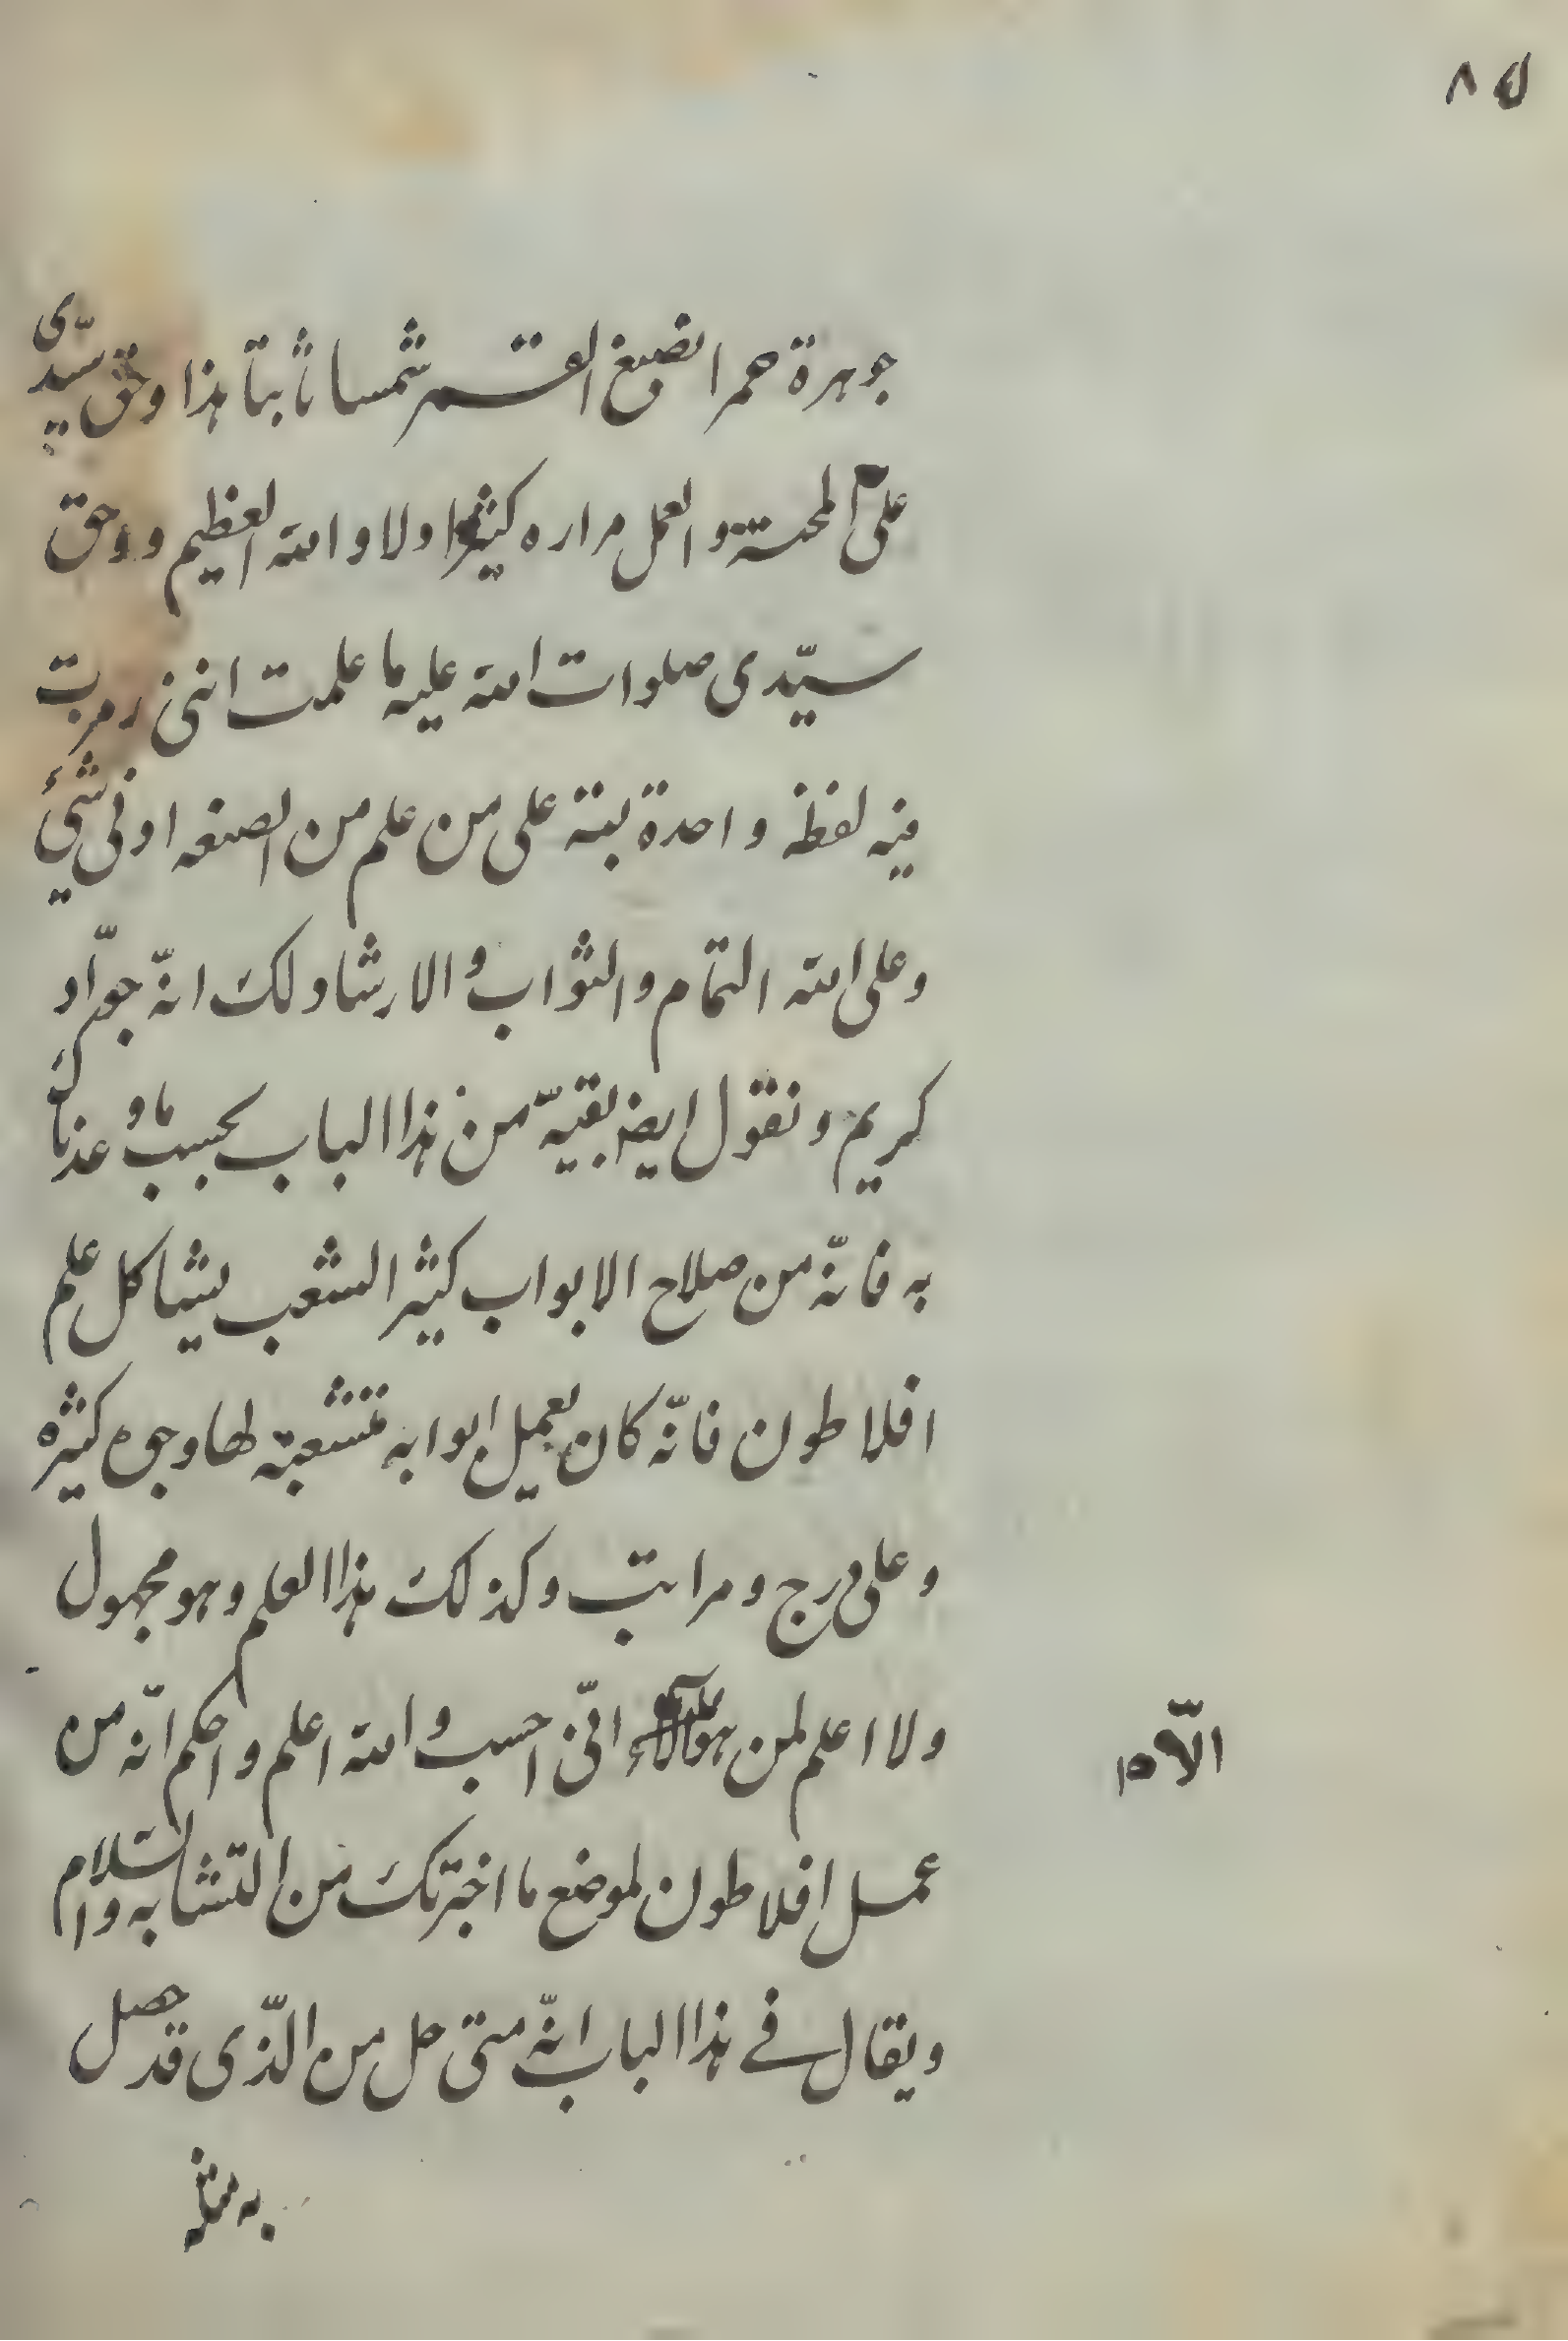 جوهرة حمرا تصبغ القمر شمسا ثابتا هذا وحق سيّدى
علىّ المحنة والعمل مراره كثيرا ولا والله العظيم وحق
سيّدى صلوات الله عليه ما علمت اننى رمزت
فيه لفظة واحدة بتة على من علم من الصنعه اوفى شئ
وعلى الله التمام والثواب والارشاد لك انّه جوّاد
كريم ونقول ايضا بقيّة من هذا الباب بحسب ما وعدناك
به فانّه من صلاح الابواب كثير الشعب يشاكل علم
افلاطون فانّه كان يعمل ابوابه متشعبة لها وجوه كثيره
وعلى درج ومراتب وكذلك هذا العلم وهو مجهول
ولا اعلم لمن هو انّى احسب والله اعلم واحكم انّه من
الّا
عمل افلاطون لموضع ما اخبرتك من التشابه والسّلام
ويقال فى هذا الباب انّه متى حل من الّذى قد حصل
به